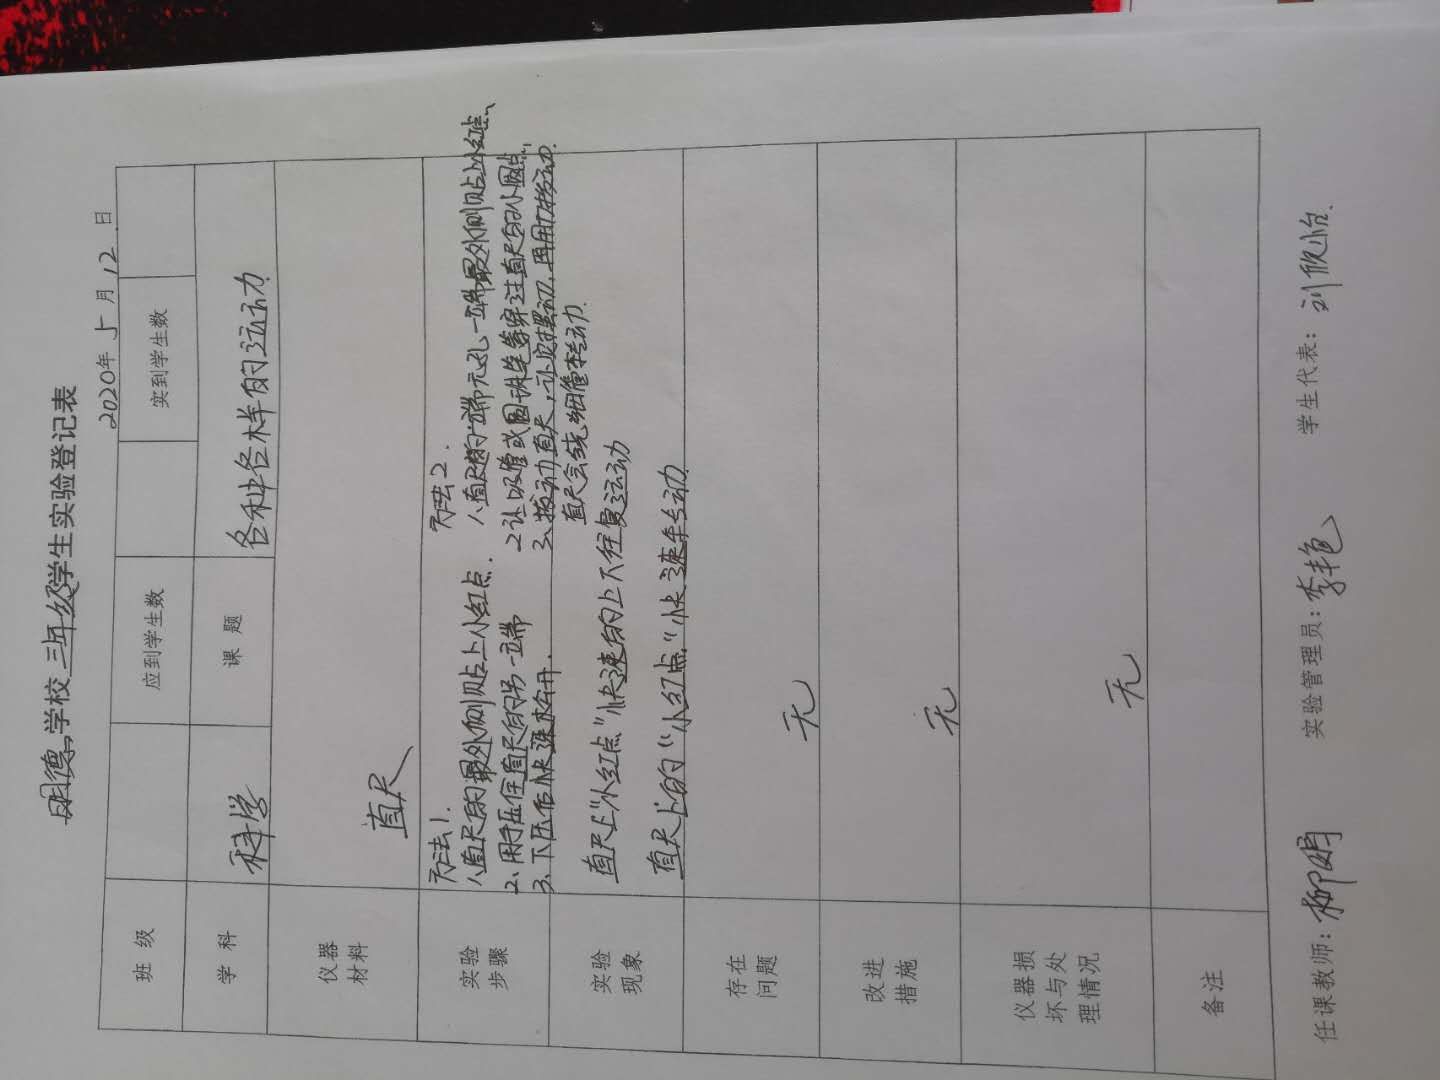 明德学校三年级学生实验登记表
2020年5月12日
班 级 应到学生数 实到学生数
学 科 科学 课 题 各种各样的运动
仪器
材料
直尺
实验
步骤
方法1.
1、直尺的最外侧贴上小红点.
2、用手压住直尺的另一端
3、下压后快速松开.
方法2.
1、直尺的一端元孔,一端最外侧贴上小红点、
2、让吸管或圆珠笔等穿过直尺的小圆点,
3、拨动直尺,让尺摆动,再用力拨动.
直尺会绕细管转动.
实验
现象
直尺上"小红点"快速的上下往复运动
直尺上的"小红点"快速转动.
存在
问题
无
改进
措施
无
仪器损
坏与处
理情况
无
备注
任课教师: 柳明 实验管理员: 李艳 学生代表: 刘欣怡.